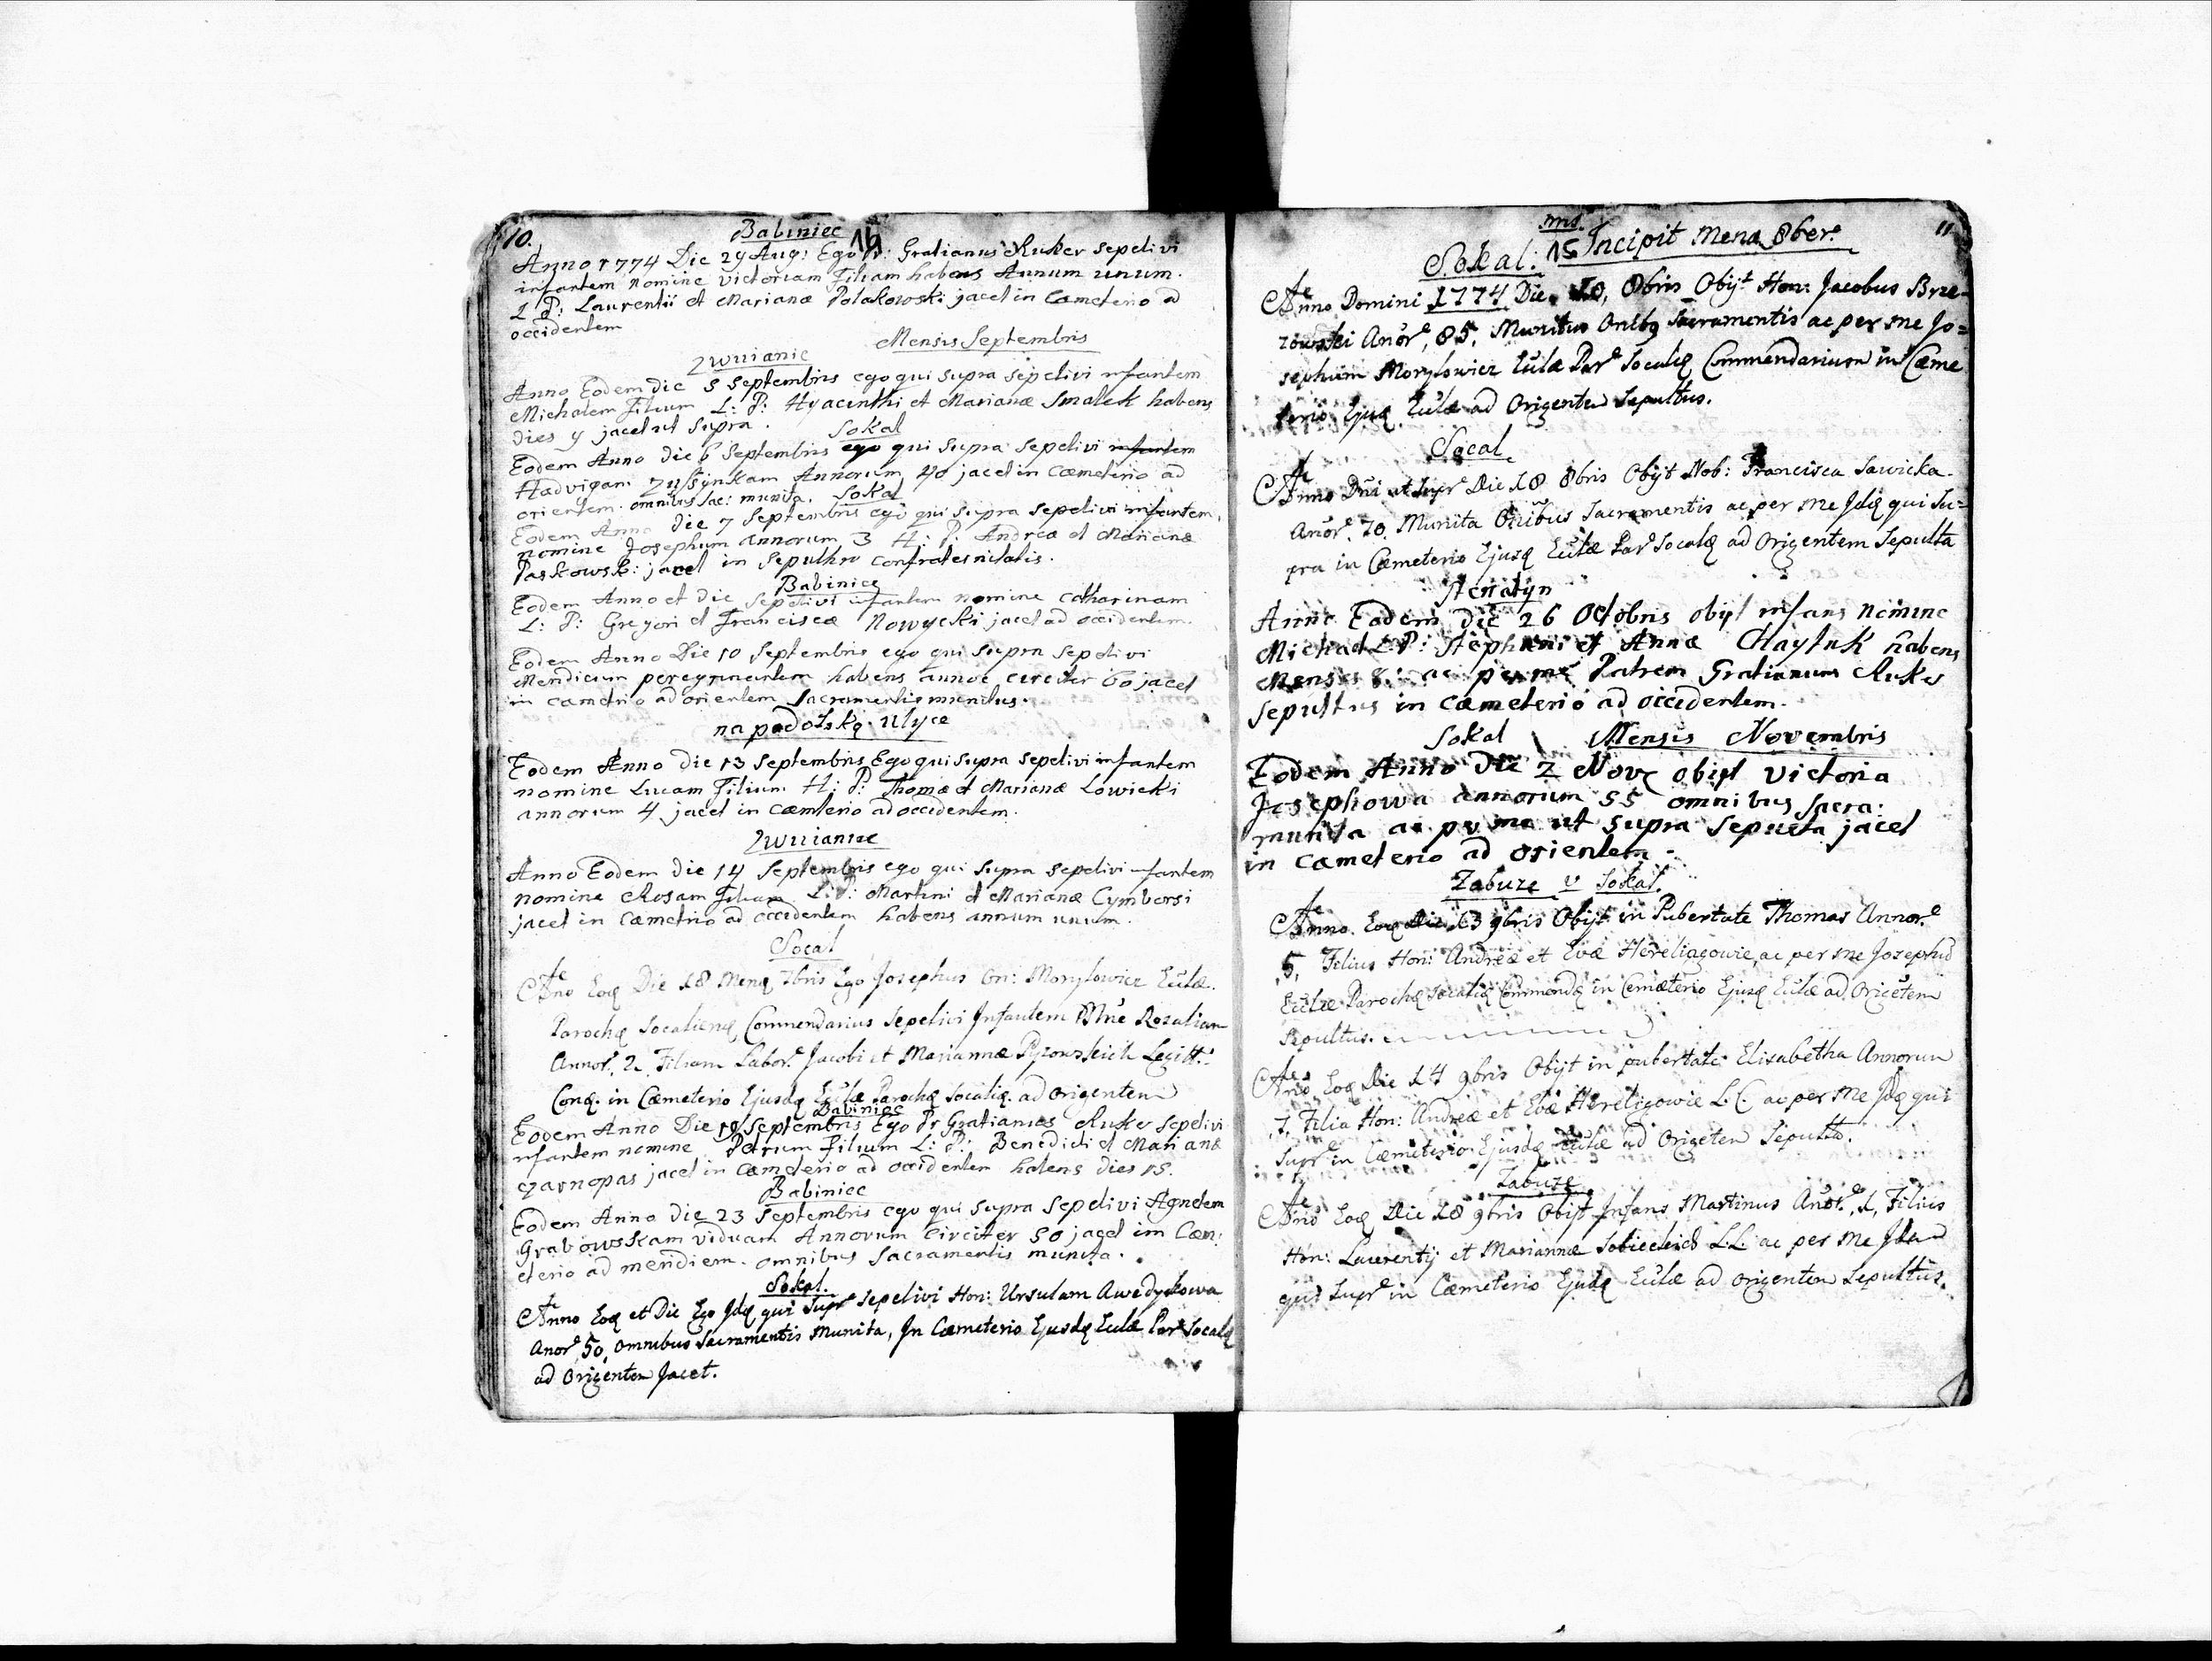 10.
Babiniec
16
Anno 1774 Die 29 Aug: Ego Pr: Gratianus Ruker sepelivi
infantem nomine victoriam Filiam habens Annum unum.
L P: Laurentii et Marianæ Polakowski jacet in Cæmeterio ad
occidentem
Mensis Septembris
Zwuianie
Anno Eodem die 5 Septembris ego qui supra sepelivi infantem
Michalem Filium L: P: Hyacinthi et Marianæ Smalek habens
dies y jacet ut supra.
Sokal
Eodem Anno die 6 Septembris ego qui supra sepelivi infantem
Hadvigam Annorum 40 jacet in cæmeterio ad
orientem. omnibus Sac: munita.
Sokal
Eodem Anno die 7 Septembris ego qui supra sepelivi infantem,
nomine Josephum annorum 3 H: P: Andreæ et Marianæ
Paskowski: jacet in Sepulhro confraternitatis.
Babinice
Eodem Anno et die sepelivi infantem nomine catharinam
L: P: Gregori et Franciscæ Nowycki jacet ad occidentem.
Eodem Anno Die 10 Septembris ego qui supra sepelivi
Mendicum peregrinantem habens annos circiter 60 jacet
in cametrio ad orientem Sacramentis munitus.
na podolską Ulyce
Eodem Anno die 13 Septembris Ego qui supra sepelivi infantem
nomine Lucam Filium H: P: Thomæ et Marianæ Lowicki
annorum 4 jacet in cæmterio ad occidentem.
Zwuianie
Anno Eodem die 14 Septembris ego qui supra sepelivi infantem
nomine Rosam Filiam L: P: Martini et Marianæ Cymborsi
jacet in cæmetrio ad occidentem habens annum unum.
Socal
Ano Eoq Die 18 Menq 7bris Ego Josephus On: Morylowicz Eulæ.
Parochq Socalienq Commendarius Sepelivi Infantem Nne Rozaliam
Annor. 2. Filiam Labor. Jacobi et Mariannæ Legitt:
Conq. in Cæmeterio Ejusdq Eulæ Parochq Socaliq. ad Origentem
Babiniec
Eodem Anno Die 19 Septembris Ego Pr Gratianus Ruker Sepelivi
infantem nomine Petrum Filium L: P: Benedicti et Marianæ
czarnopas jacet in cæmeterio ad occidentem habens dies 15.
Babiniec
Eodem Anno die 23 Septembris ego qui supra sepelivi Agnetem
Grabowskam viduam Annorum circiter 50 jacet in Cæm:
eterio ad meridiem. omnibus Sacramentis munita.
Sokal.
Anno Eoq et Die Ego Jdq qui Supr sepelivi Hon: Ursulam Awedykowa
Anor 50, omnibus Sacramentis Munita, In Cæmeterio Ejusdq Eulæ Par Socalq
ad Origentem Jacet.
11
Sokal: 15 Incipit Menq 8ber
Anno Domini 1774 Die 10, 8bris Obijt Hon: Jacobus Brze-
zowski Anor, 85, Munitus Onibq Sacramentis ac per me Jo=
sephum Morylowicz Eulæ Par Socalq Commendarium in Cæme
terio Ejusq Eulæ ad Origentem Sepultus.
Socal.
Anno Dni ut Supr Die 18 8bris Obijt Nob: Francisca Sawicka
Anor. 70. Munita Onibus Sacramentis ac per me Jdq qui Su=
pra in Cæmeterio Ejusq Eulæ Par Socalq ad Origentem Sepulta
Anno Eodem die 26 Octobris obijt infans nomine
Michael L P: Stephani et Annæ Haytuk habens
Menses 8: ac per me Patrem Gratianum Ruker
Sepultus in cæmeterio ad occidentem.
Sokal
Mensis Novembris
Eodem Anno Die 2 Nov obijt Victoria
Josephowa annorum 55 omnibus Sacra:
munita ac per me ut supra Sepulta jacet
in cæmeterio ad orientem.
Zabuze v Sokal.
Anno Eoq Die 13 9bris Obijt in Pubertate Thomas Annor
5, Filius Hon: Andreæ et Evæ Hereligowie, ac per me Josephu
Eulæ Parochq Socaliq Commendq in Cemæterio Ejusq Eulæ ad Origetem
Sepultus.
Ano Eoq Die 14 9bris Obijt in pubertate Elisabetha Annorum
7, Filia Hon: Andreæ et Evæ Hereligowie L.C. ac per me Jdq qui
Supr in Cæmeterio Ejusdq Eulæ ad Origeten Sepulta.
Zabuze
Ano Eoq Die 18 9bris Obijt Infans Martinus Anor. 1, Filius
Hon: Laurentij et Mariannæ Sobieckich L.L. ac per me Jdem
qui Supr in Cæmeterio Ejudq Eulæ ad Origenten Sepultus.